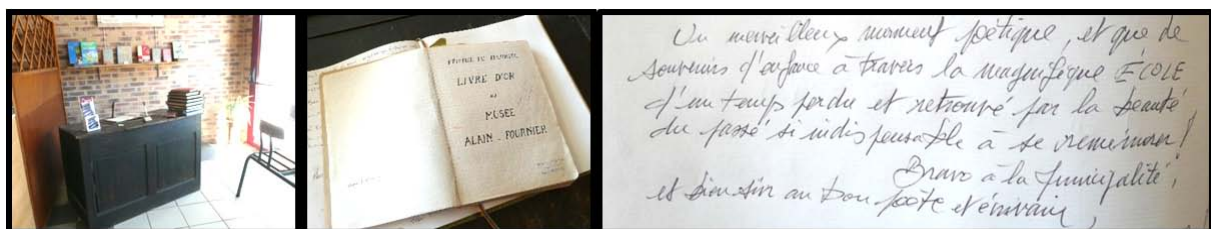 LIVRE D'OR
DU
MUSEE
ALAIN-FOURNIER
Un merveilleux moment poétique, et que de
souvenirs d'enfance à travers la magnifique ÉCOLE
d'un temps perdu et retrouvé par la beauté
du passé si indispensable à se remémorer !
Bravo à la municipalité,
et bien sûr au bon poète et écrivain,